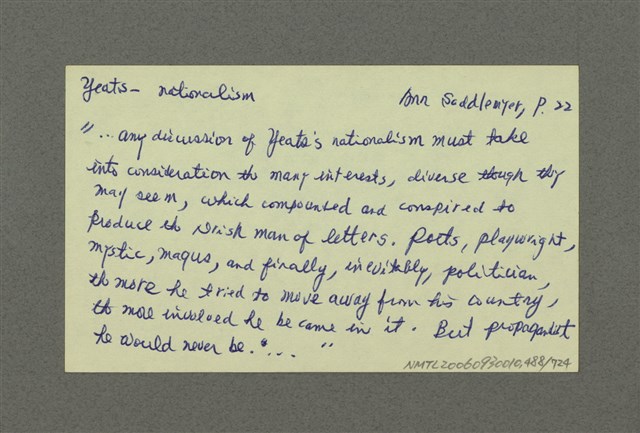 Yeats - nationalism
Ann Saddlemyer, P. 22
"... any discussion of Yeats's nationalism must take
into consideration th many interests, diverse though thy
may seem, which compounded and conspired to
produce th Irish man of letters. Poets, playwright,
mystic, magus, and finally, inevitably, politician,
th more he tried to move away from his country,
th more involved he became in it. But propagandist
he would never be. "... "
NMTL20060930010,488/724